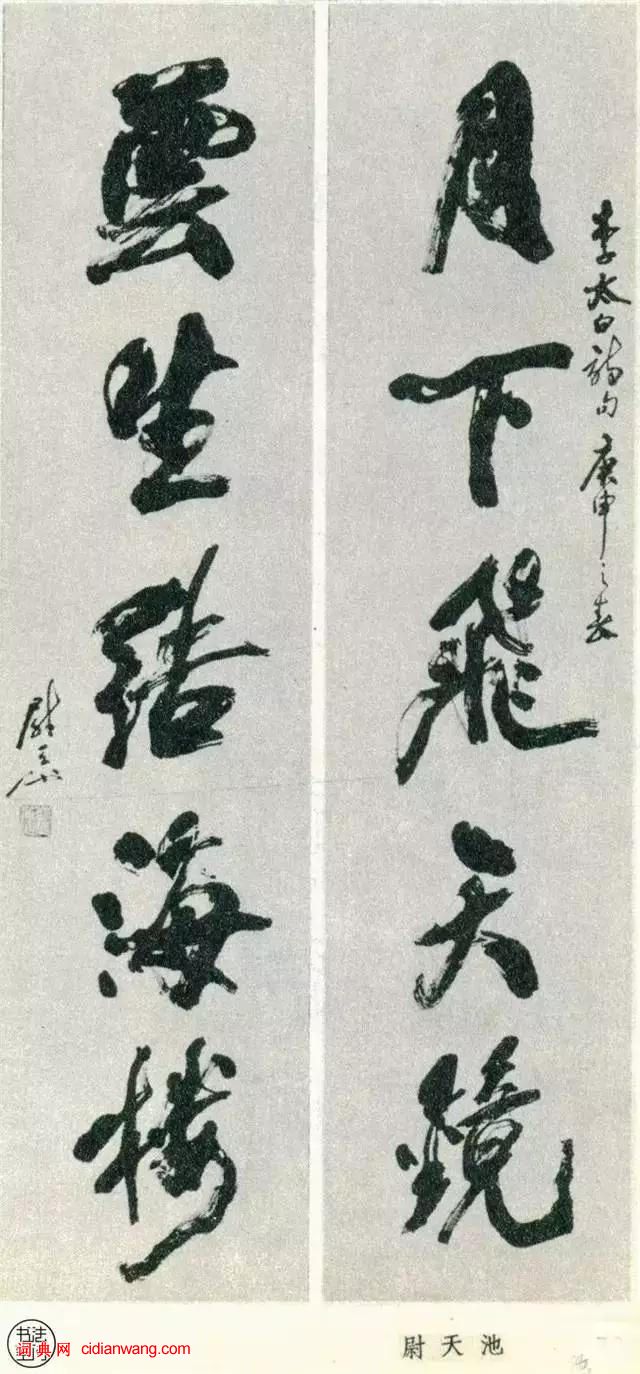 李太白詩句 庚申之春
月下飛天鏡
雲生結海樓
尉天池
尉天池
书法
词典网 cidianwang.com